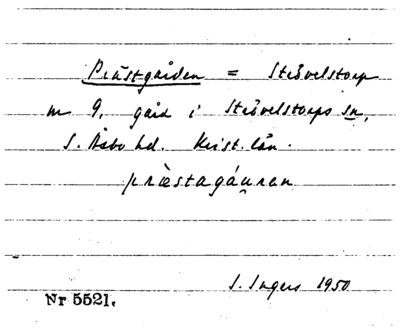 Prästgården = Stidvelstorp
m 9, gård i Stidvelstorps sn,
S. Åsbo hd. Krist. län.
præstagáu̯ran
I. Ingers 1950
Nr 5521.